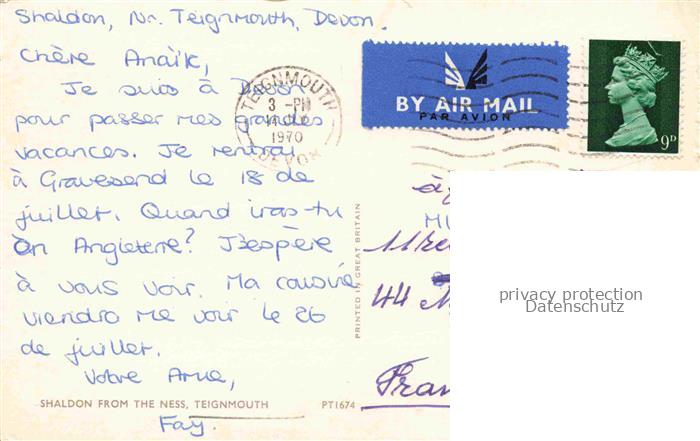 Shaldon, Nr. Teignmouth, Devon.
Chère Anaïk,
Je suis à Devon
pour passer mes grandes
vacances. Je rentrai
à Gravesend le 18 de
juillet. Quand iras-tu
en Angleterre? J'espère
à vous voir. Ma cousine
viendra me voir le 26
de juillet.
Votre Amie,
Fay.
SHALDON FROM THE NESS, TEIGNMOUTH PT1674
PRINTED IN GREAT BRITAIN
TEIGNMOUTH
3 - PM
1970
DEVON
BY AIR MAIL
PAR AVION
9D
44
Fran
privacy protection
Datenschutz